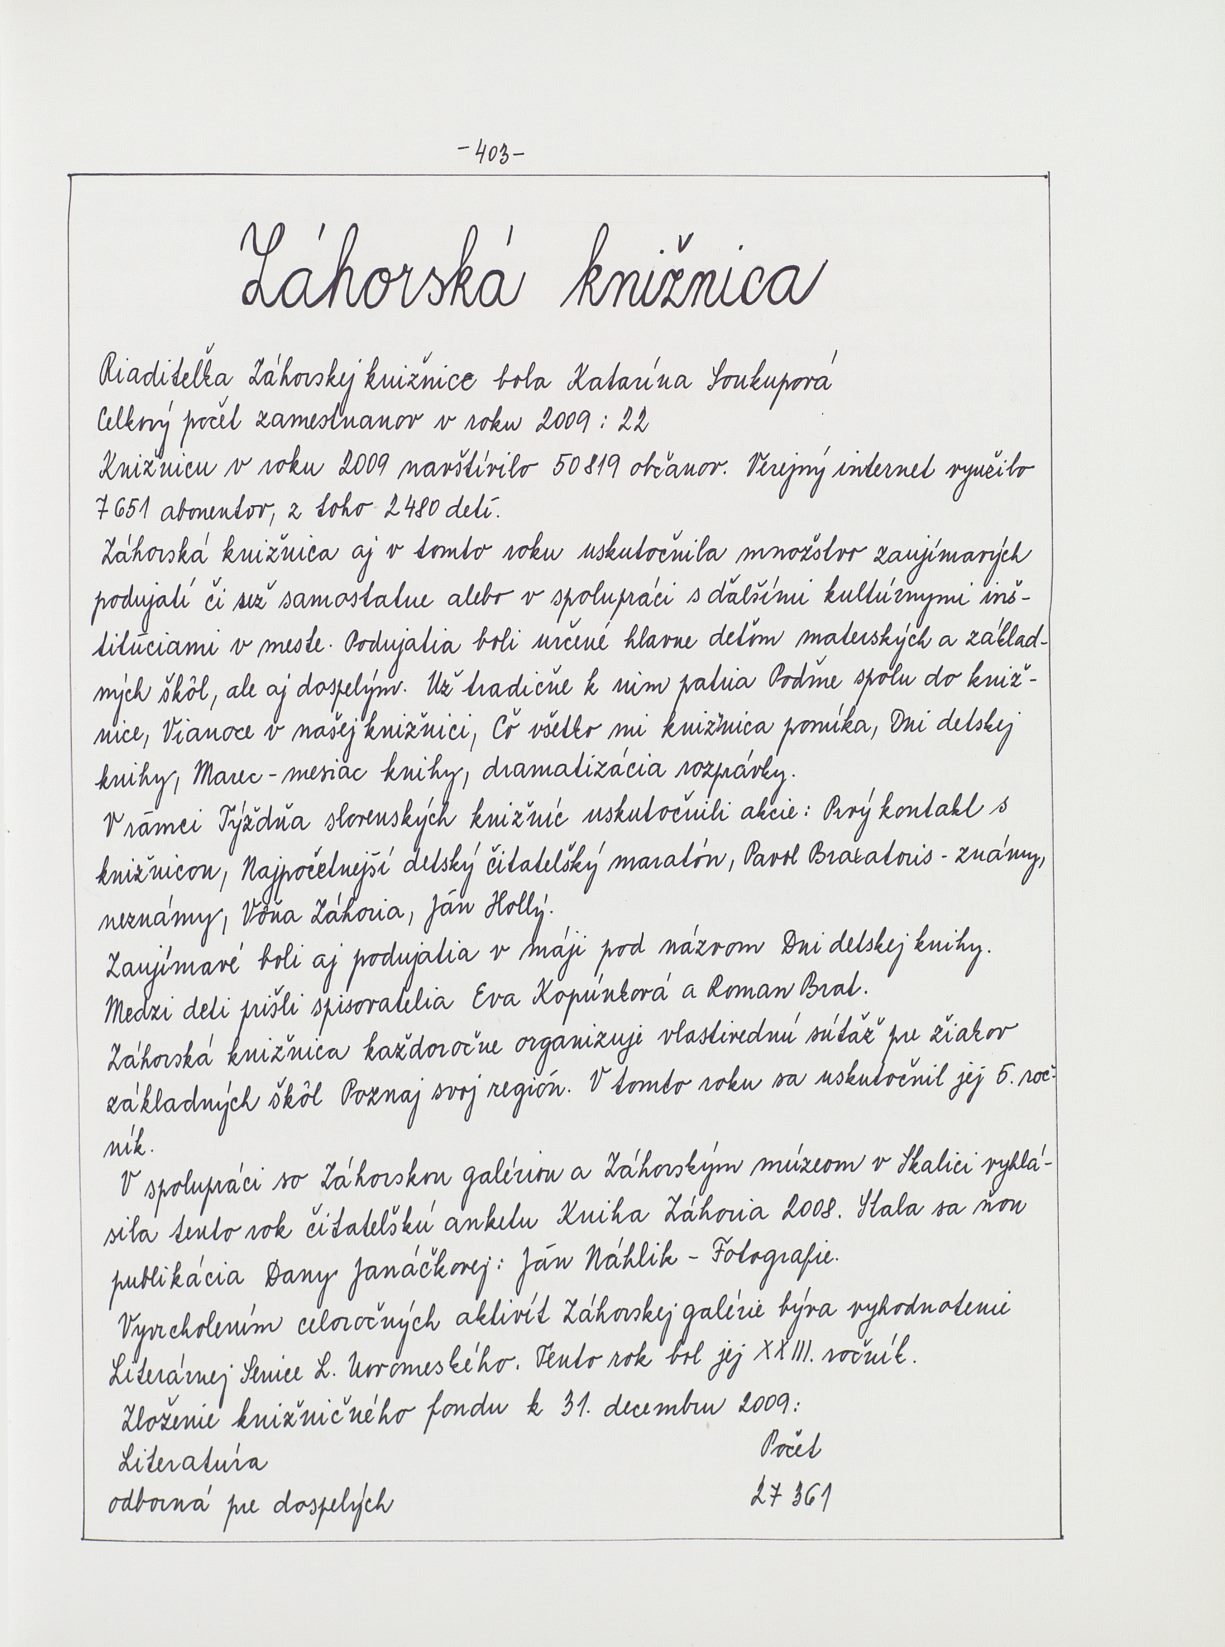 -403-
Záhorská knižnica
Riaditeľka Záhorskej knižnice bola Katarína Soukupová
Celkový počet zamestnanov v roku 2009: 22
Knižnicu v roku 2009 navštívilo 50819 občanov. Verejný internet využilo
7651 abonentov, z toho 2480 detí.
Záhorská knižnica aj v tomto roku uskutočnila množstvo zaujímavých
podujatí či už samostatne alebo v spolupráci s ďalšími kultúrnymi inš-
titúciami v meste. Podujatia boli určené hlavne deťom materských a základ-
ných škôl, ale aj dospelým. Už tradične k nim patria Poďme spolu do kniž-
nice, Vianoce v našej knižnici, Čo všetko mi knižnica ponúka, Dni detskej
knihy, Marec - mesiac knihy, dramatizácia rozprávky.
V rámci Týždňa slovenských knižníc uskutočnili akcie: Prvý kontakt s
knižnicou, Najpočetnejší detský čitateľský maratón, Pavol Braxatoris - známy,
neznámy, Vôňa Záhoria, Ján Hollý.
Zaujímavé boli aj podujatia v máji pod názvom Dni detskej knihy.
Medzi deti prišli spisovatelia Eva Kopúnková a Roman Brat.
Záhorská knižnica každoročne organizuje vlastivednú súťaž pre žiakov
základných škôl Poznaj svoj región. V tomto roku sa uskutočnil jej 5. roč-
ník.
V spolupráci so Záhorskou galériou a Záhorským múzeom v Skalici vyhlá-
sila tento rok čitateľskú anketu Kniha Záhoria 2008. Stala sa ňou
publikácia Dany Janáčkovej: Ján Náhlik - Fotografie.
Vyvrcholením celoročných aktivít Záhorskej galérie býva vyhodnotenie
Literárnej Senice L. Novomeského. Tento rok bol jej XXIII. ročník.
Zloženie knižničného fondu k 31. decembru 2009:
Literatúra Počet
odborná pre dospelých 27 361